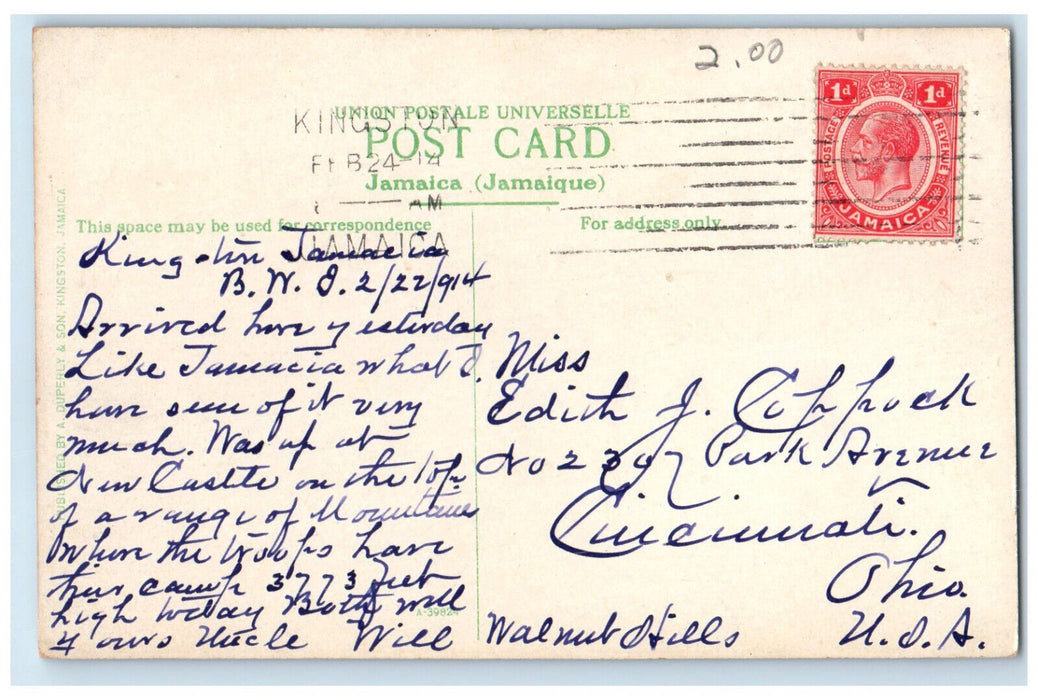 2.00
1d 1d
POSTAGE REVENUE
JAMAICA
UNION POSTALE UNIVERSELLE
POST CARD
Jamaica (Jamaique)
KINGSTON
FEB 24 14
AM
JAMAICA
This space may be used for correspondence
For address only
PUBLISHED BY A. DUPERLY & SON, KINGSTON, JAMAICA
Kingston Jamacia
B. W. I. 2/22/914
Arrived here yesterday
Like Jamacia what I
have seen of it very
much. Was up at
New Castle on the top
of a range of Mountains
Where the troops have
their camp 3773 feet
high today Both well
Yours Uncle Will
A-39824
Miss
Edith J. Coppock
No 2397 Park Avenue
Cincinnati.
Ohio
Walnut Hills U.S.A.